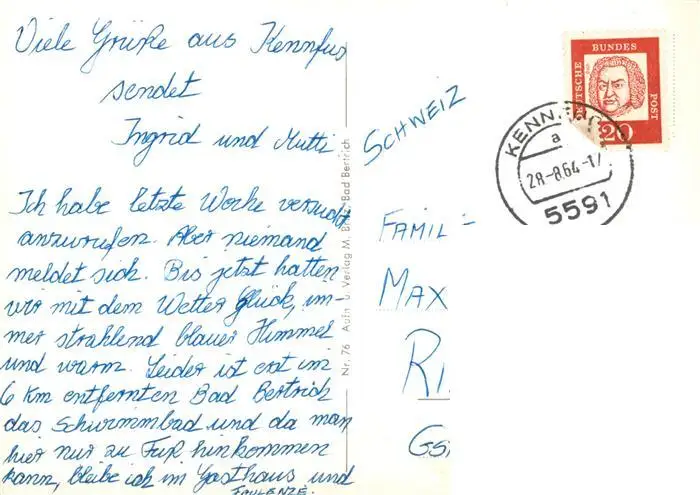 Viele Grüße aus Kennfus
sendet
Ingrid und Mutti
Ich habe letzte Woche versucht
anzurufen. Aber niemand
meldet sich. Bis jetzt hatten
wir mit dem Wetter Glück, im-
mer strahlend blauer Himmel
und warm. Leider ist erst im
6 km entfernten Bad Bertrich
das Schwimmbad und da man
hier nur zu Fuß hinkommen
kann, bleibe ich im Gasthaus und
FAULENZE.
Nr. 76 Aufn. u. Verlag M. Bad Bertrich
SCHWEIZ
FAMIL=
MAX
RI
GS
DEUTSCHE BUNDES POST
20
KENN
a
28.-8.64-17
5591